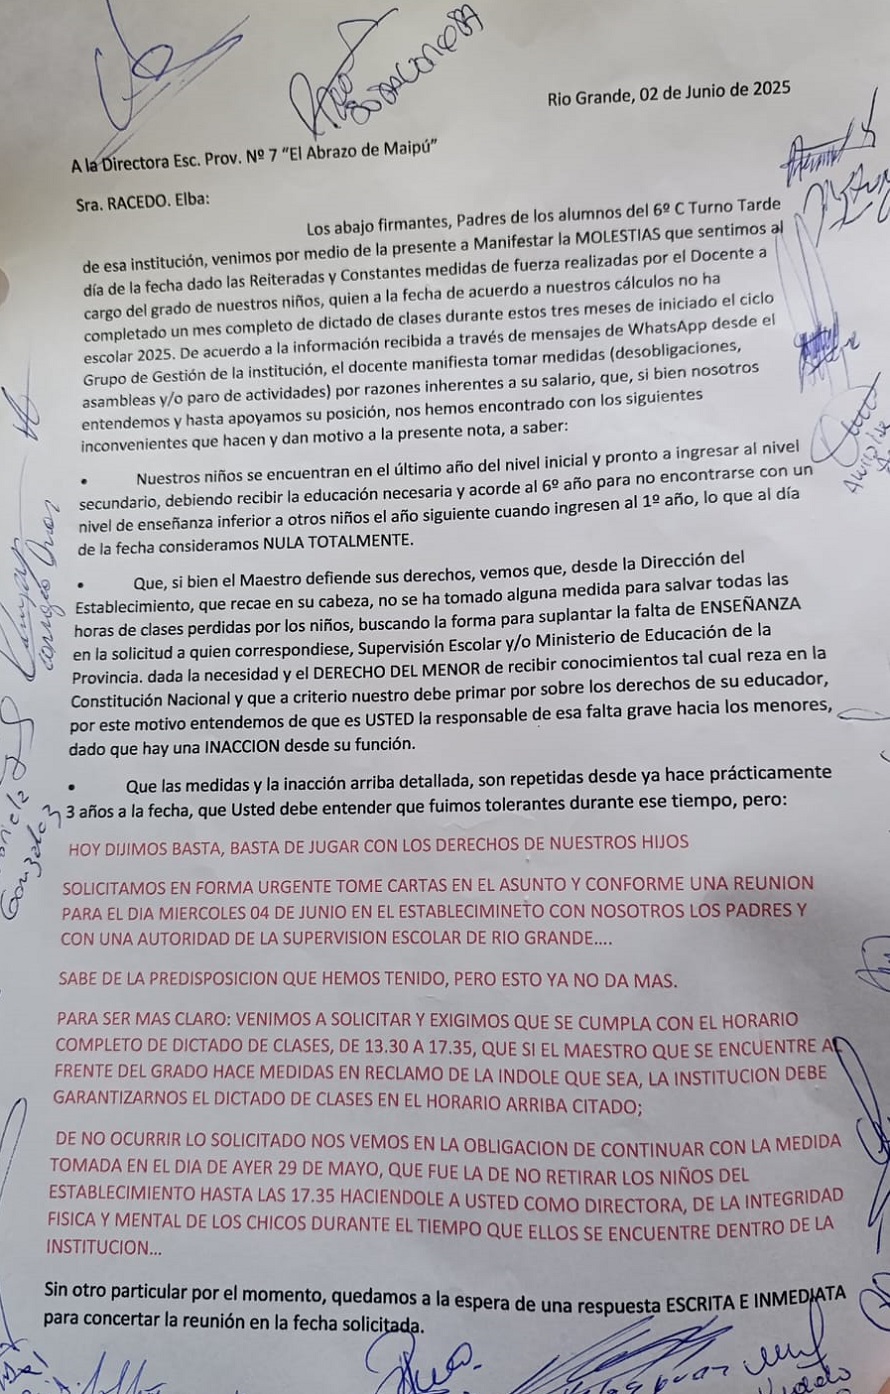 Rio Grande, 02 de Junio de 2025
A la Directora Esc. Prov. Nº 7 "El Abrazo de Maipú"
Sra. RACEDO. Elba:
Los abajo firmantes, Padres de los alumnos del 6º C Turno Tarde
de esa institución, venimos por medio de la presente a Manifestar la MOLESTIAS que sentimos al
día de la fecha dado las Reiteradas y Constantes medidas de fuerza realizadas por el Docente a
cargo del grado de nuestros niños, quien a la fecha de acuerdo a nuestros cálculos no ha
completado un mes completo de dictado de clases durante estos tres meses de iniciado el ciclo
escolar 2025. De acuerdo a la información recibida a través de mensajes de WhatsApp desde el
Grupo de Gestión de la institución, el docente manifiesta tomar medidas (desobligaciones,
asambleas y/o paro de actividades) por razones inherentes a su salario, que, si bien nosotros
entendemos y hasta apoyamos su posición, nos hemos encontrado con los siguientes
inconvenientes que hacen y dan motivo a la presente nota, a saber:
• Nuestros niños se encuentran en el último año del nivel inicial y pronto a ingresar al nivel
secundario, debiendo recibir la educación necesaria y acorde al 6º año para no encontrarse con un
nivel de enseñanza inferior a otros niños el año siguiente cuando ingresen al 1º año, lo que al día
de la fecha consideramos NULA TOTALMENTE.
• Que, si bien el Maestro defiende sus derechos, vemos que, desde la Dirección del
Establecimiento, que recae en su cabeza, no se ha tomado alguna medida para salvar todas las
horas de clases perdidas por los niños, buscando la forma para suplantar la falta de ENSEÑANZA
en la solicitud a quien correspondiese, Supervisión Escolar y/o Ministerio de Educación de la
Provincia. dada la necesidad y el DERECHO DEL MENOR de recibir conocimientos tal cual reza en la
Constitución Nacional y que a criterio nuestro debe primar por sobre los derechos de su educador,
por este motivo entendemos de que es USTED la responsable de esa falta grave hacia los menores,
dado que hay una INACCION desde su función.
• Que las medidas y la inacción arriba detallada, son repetidas desde ya hace prácticamente
3 años a la fecha, que Usted debe entender que fuimos tolerantes durante ese tiempo, pero:
HOY DIJIMOS BASTA, BASTA DE JUGAR CON LOS DERECHOS DE NUESTROS HIJOS
SOLICITAMOS EN FORMA URGENTE TOME CARTAS EN EL ASUNTO Y CONFORME UNA REUNION
PARA EL DIA MIERCOLES 04 DE JUNIO EN EL ESTABLECIMINETO CON NOSOTROS LOS PADRES Y
CON UNA AUTORIDAD DE LA SUPERVISION ESCOLAR DE RIO GRANDE....
SABE DE LA PREDISPOSICION QUE HEMOS TENIDO, PERO ESTO YA NO DA MAS.
PARA SER MAS CLARO: VENIMOS A SOLICITAR Y EXIGIMOS QUE SE CUMPLA CON EL HORARIO
COMPLETO DE DICTADO DE CLASES, DE 13.30 A 17.35, QUE SI EL MAESTRO QUE SE ENCUENTRE AL
FRENTE DEL GRADO HACE MEDIDAS EN RECLAMO DE LA INDOLE QUE SEA, LA INSTITUCION DEBE
GARANTIZARNOS EL DICTADO DE CLASES EN EL HORARIO ARRIBA CITADO;
DE NO OCURRIR LO SOLICITADO NOS VEMOS EN LA OBLIGACION DE CONTINUAR CON LA MEDIDA
TOMADA EN EL DIA DE AYER 29 DE MAYO, QUE FUE LA DE NO RETIRAR LOS NIÑOS DEL
ESTABLECIMIENTO HASTA LAS 17.35 HACIENDOLE A USTED COMO DIRECTORA, DE LA INTEGRIDAD
FISICA Y MENTAL DE LOS CHICOS DURANTE EL TIEMPO QUE ELLOS SE ENCUENTRE DENTRO DE LA
INSTITUCION...
Sin otro particular por el momento, quedamos a la espera de una respuesta ESCRITA E INMEDIATA
para concertar la reunión en la fecha solicitada.
Gonzalez